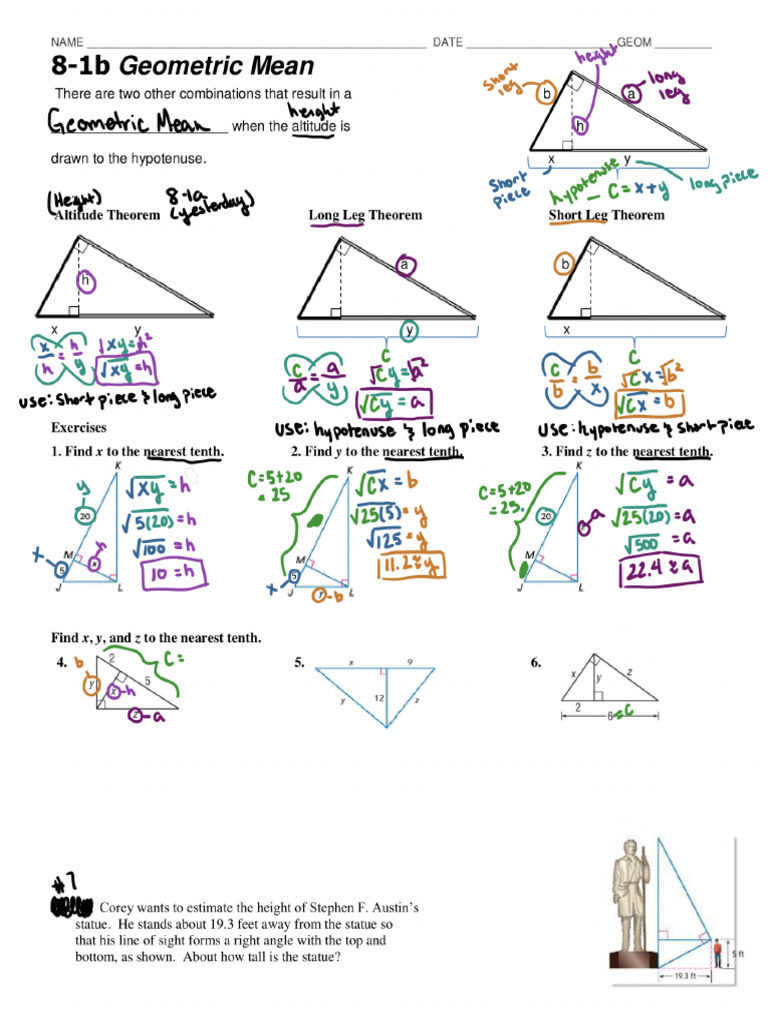 NAME DATE GEOM
8-1b Geometric Mean
There are two other combinations that result in a
height
Geometric Mean when the altitude is
drawn to the hypotenuse.
short leg
b
height
h
a
long leg
x y
short piece
hypotenuse
C = x + y
long piece
(Height)
Altitude Theorem
8-1a
(yesterday)
Long Leg Theorem
Short Leg Theorem
h
x y
a
y
C
b
x
C
x/h = h/y
√xy = √h²
√xy = h
use: short piece & long piece
c/a = a/y
√cy = √a²
√cy = a
use: hypotenuse & long piece
c/b = b/x
√cx = √b²
√cx = b
use: hypotenuse & short piece
Exercises
1. Find x to the nearest tenth.
K
y
20
M
h
x
x
5
J L
√xy = h
√5(20) = h
√100 = h
10 = h
2. Find y to the nearest tenth.
C = 5+20
= 25
K
M
x
5
J L
y - b
√cx = b
√25(5) = y
√125 = y
11.2 ≈ y
3. Find z to the nearest tenth.
C = 5+20
= 25.
K
20
z
a
M
J L
√cy = a
√25(20) = a
√500 = a
22.4 ≈ a
Find x, y, and z to the nearest tenth.
4.
b
2
C =
5
y
x - h
z - a
5.
x 9
12
y z
6.
x y z
2
6 = C
#7
Corey wants to estimate the height of Stephen F. Austin's
statue. He stands about 19.3 feet away from the statue so
that his line of sight forms a right angle with the top and
bottom, as shown. About how tall is the statue?
5 ft
19.3 ft